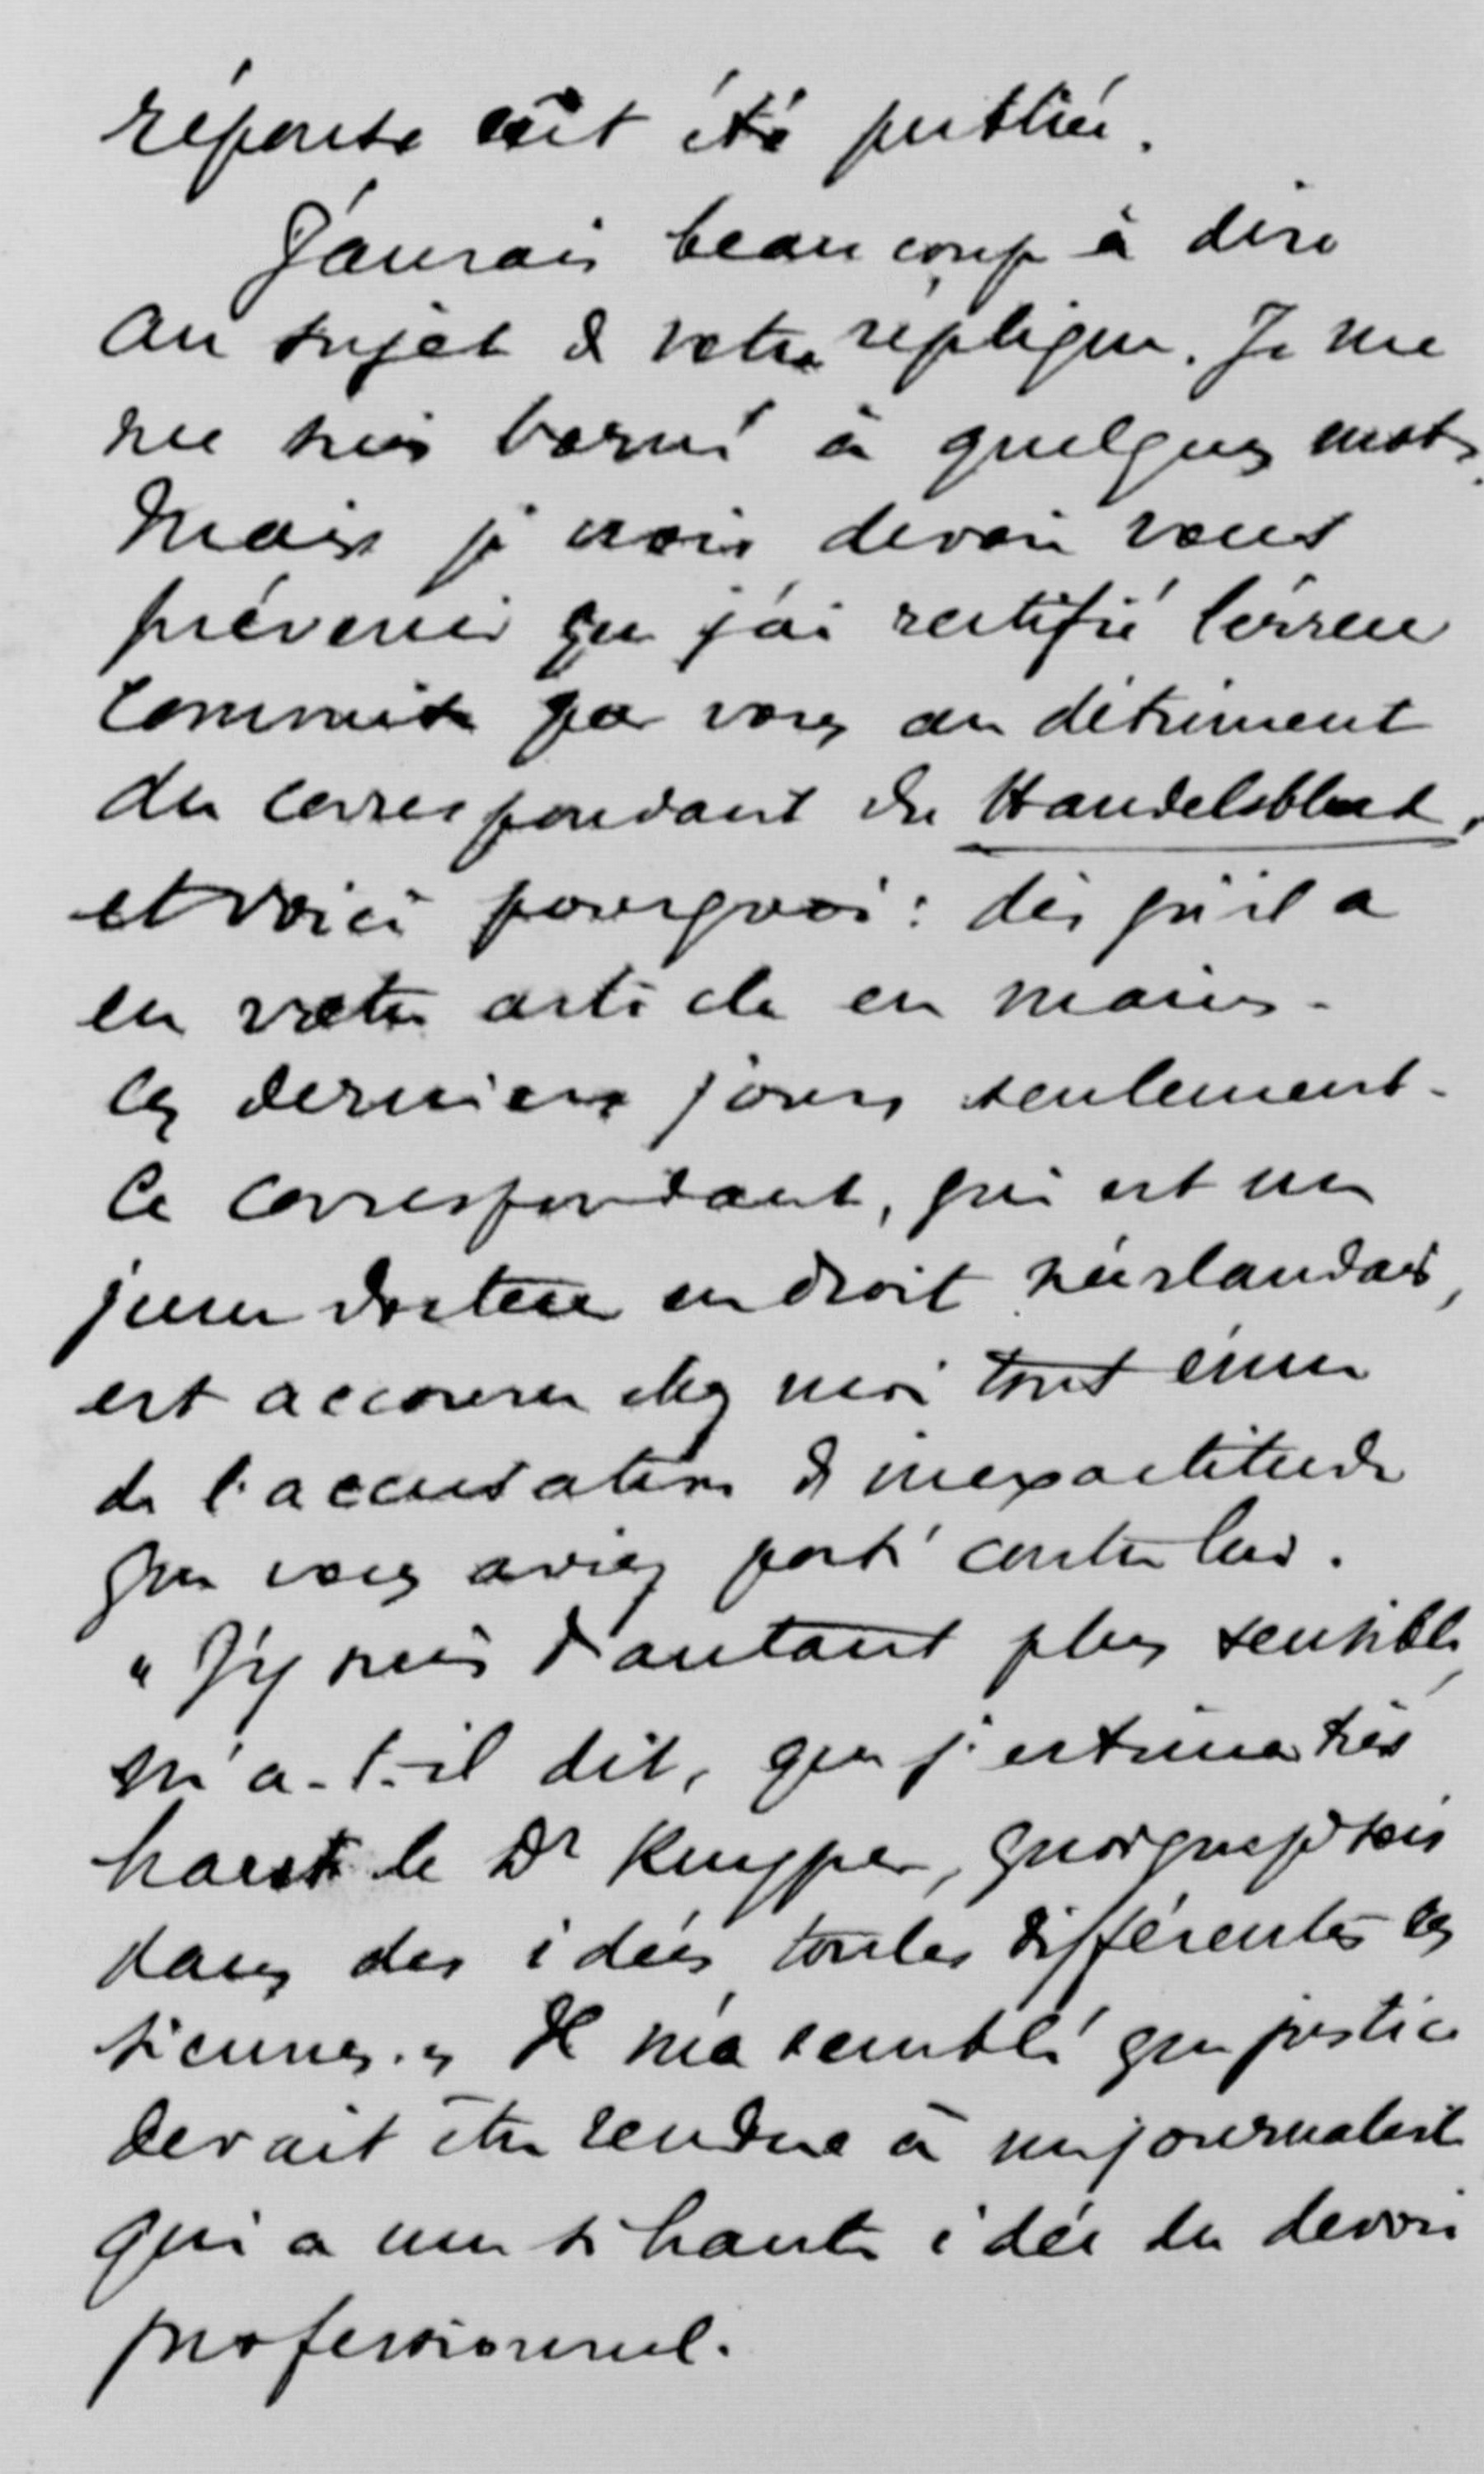 réponse eût été publiée.
J'aurais beaucoup à dire
au sujet de votre réplique. Je me
me suis borné à quelques mots.
Mais je crois devoir vous
prévenir que j'ai rectifié l'erreur
commise par vous au détriment
du correspondant du Handelsblad,
et voici pourquoi : dès qu'il a
eu votre article en mains -
ces derniers jours seulement -
ce correspondant, qui est un
jeune docteur en droit néerlandais,
est accouru chez moi tout ému
de l'accusation d'inexactitude
que vous aviez porté contre lui.
« J'y suis d'autant plus sensible,
m'a-t-il dit, que j'estime très
haut le Dr Kuyper, quoique je sois
dans des idées toutes différentes des
siennes. » Il m'a semblé que justice
devait être rendue à un journaliste
qui a une si haute idée du devoir
professionnel.